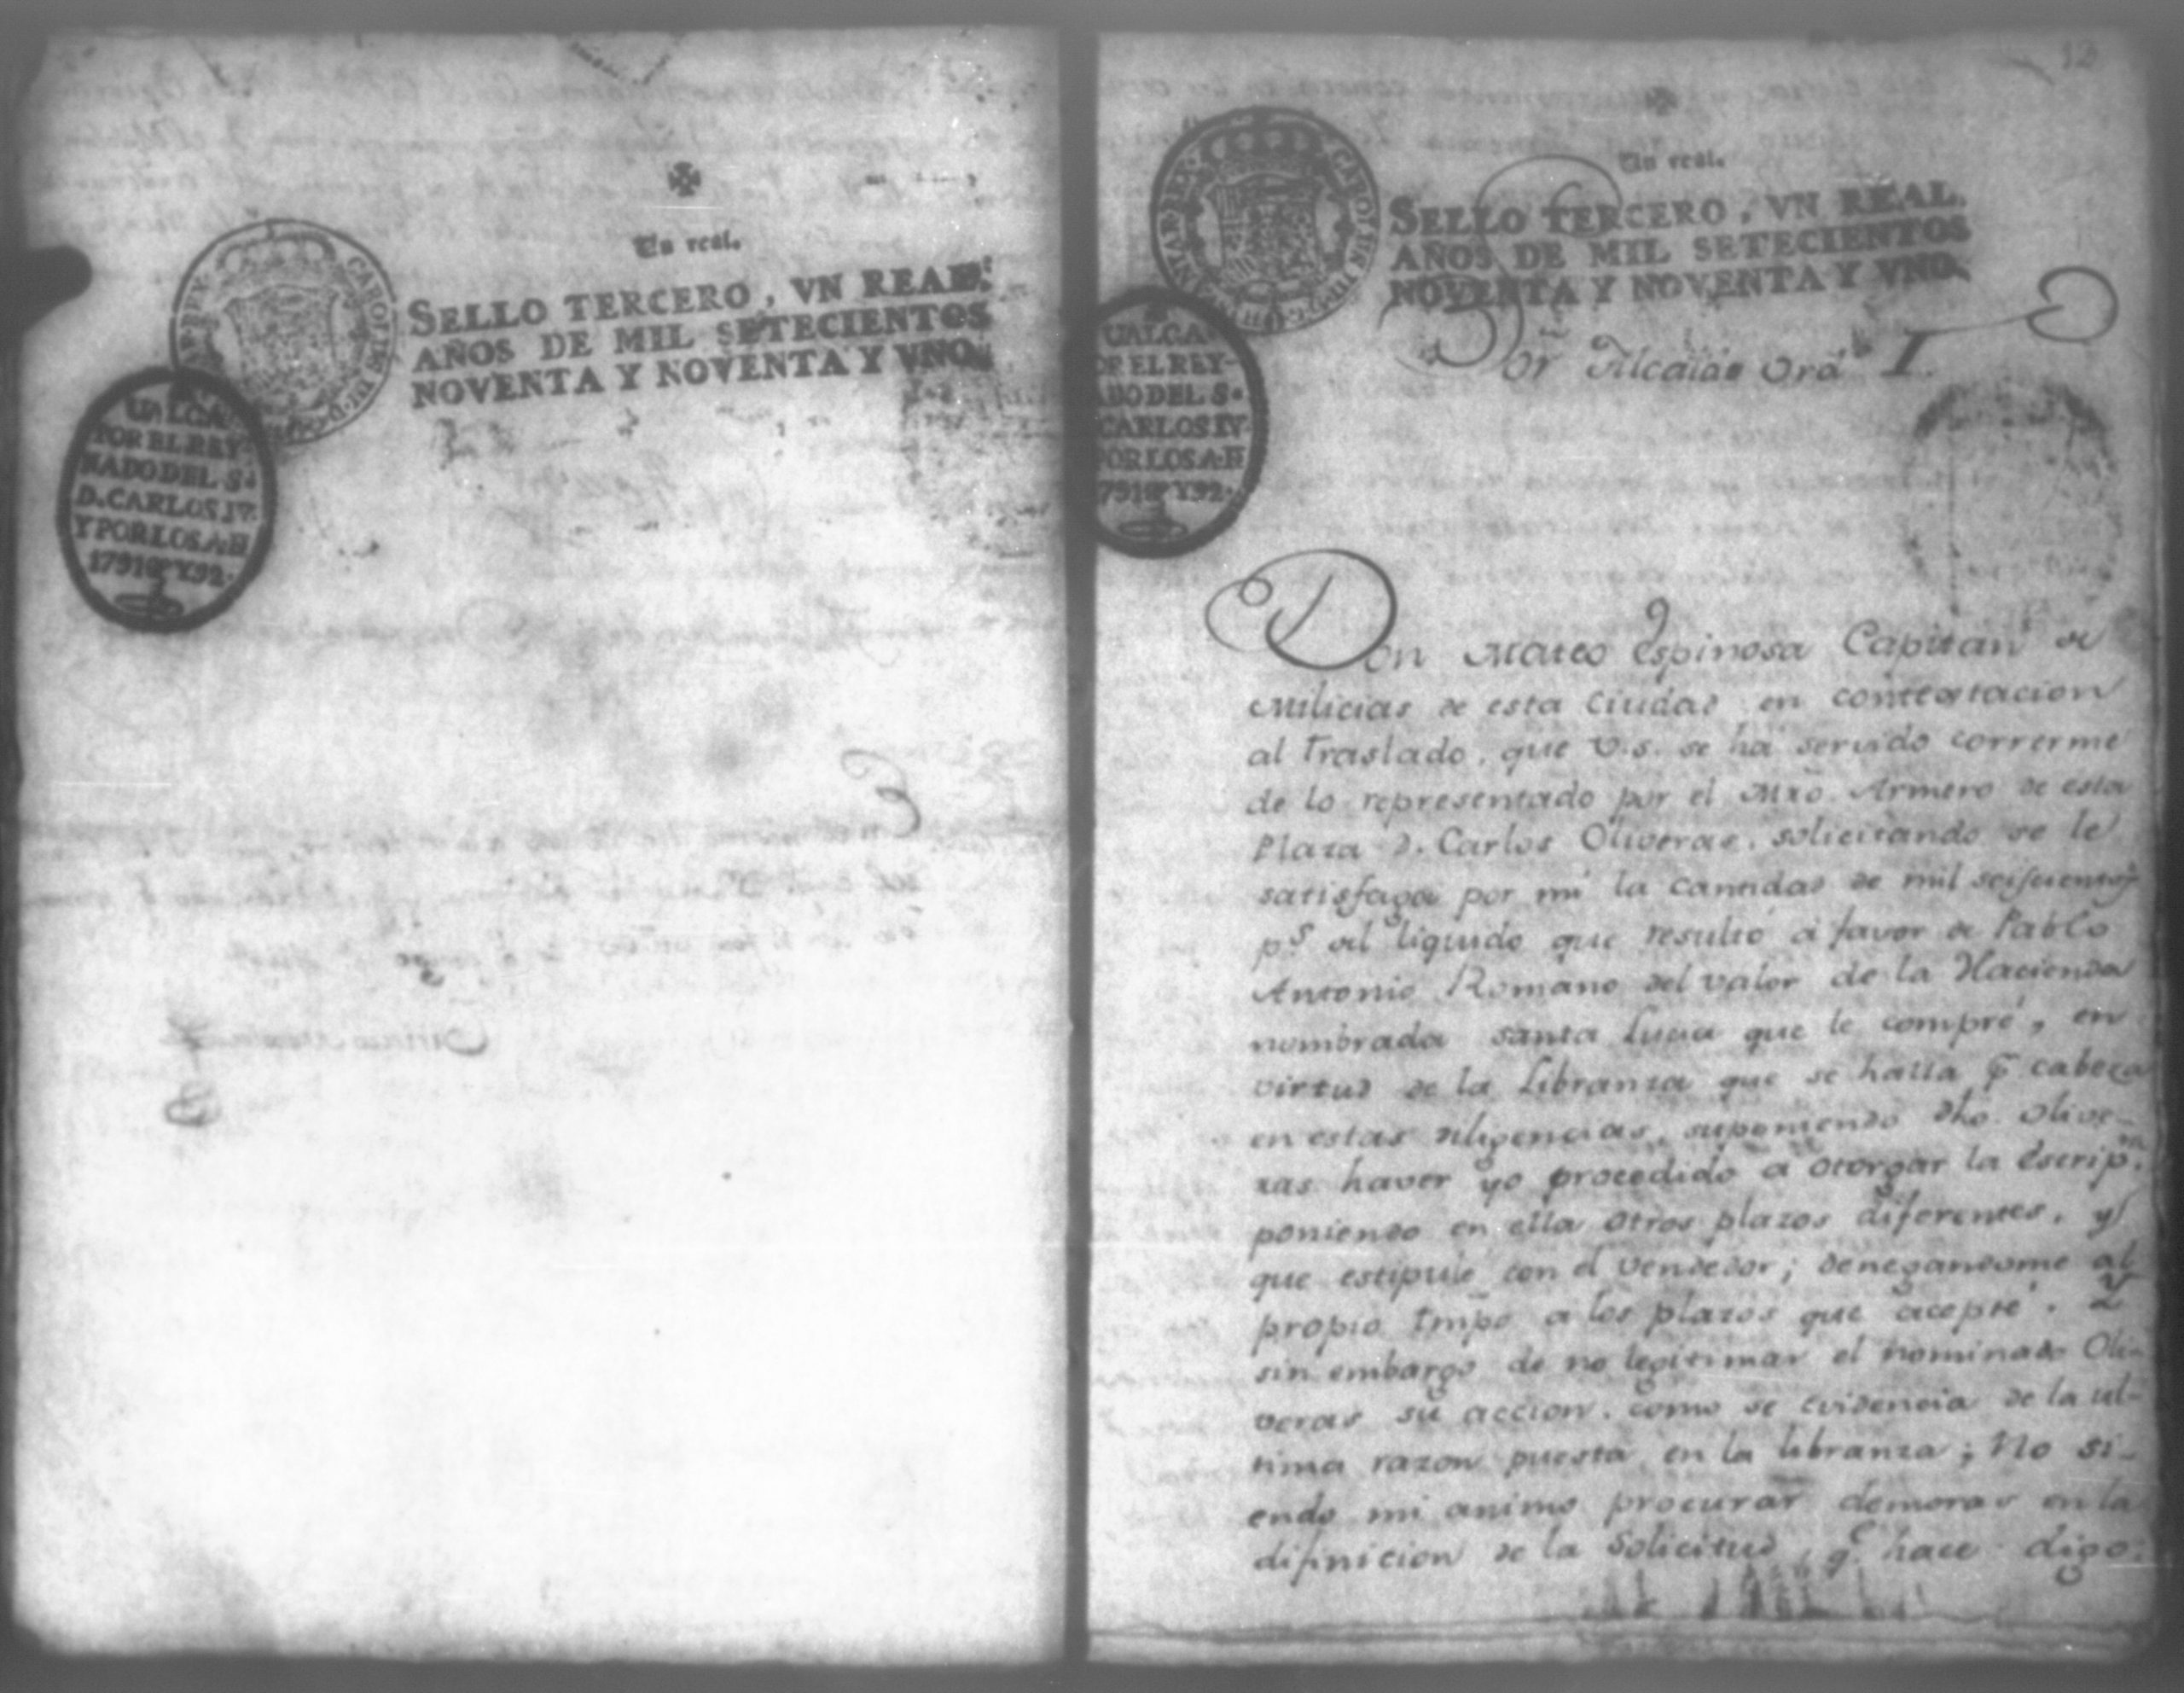 Un real.
SELLO TERCERO, VN REAL.
AÑOS DE MIL SETECIENTOS
NOVENTA Y NOVENTA Y VNO.
CAROLUS III
VALGA
POR EL REY
NADO DEL S.
D. CARLOS IV.
Y POR LOS A. D
1791 Y 92.
12
Un real.
SELLO TERCERO, VN REAL.
AÑOS DE MIL SETECIENTOS
NOVENTA Y NOVENTA Y VNO.
CAROLUS III
VALGA
OR EL REY
ADO DEL S.
CARLOS IV.
POR LOS A. D
791 Y 92.
Sor Alcalde Ordo
Don Mateo Espinosa Capitan de
Milicias de esta Ciudad en contestacion
al Traslado, que V.S. se ha servido correrme
de lo representado por el Mro. Armero de esta
Plaza D. Carlos Oliveras, solicitando se le
satisfaga por mi la cantidad de mil seiscientos
ps. del liquido que resultó á favor de Pablo
Antonio Romano del valor de la Hacienda
nombrada Santa Lucia que le compré, en
virtud de la Libranza que se halla pr. cabeza
en estas diligencias, suponiendo dho. Olive-
ras haver yo procedido a otorgar la Escripon.
poniendo en ella otros plazos diferentes, qs
que estipulé con el Vendedor; denegandome al
propio tmpo a los plazos que acepté. Y
sin embargo de no legitimar el nominado Oli-
veras su accion, como se evidencia de la ul-
tima razon puesta en la libranza; No si-
endo mi animo procurar demoras en la
difinicion de la Solicitud, qe. hace digo: